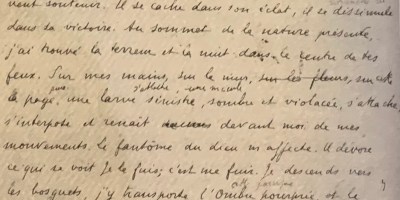 veut soutenir. Il se cache dans son éclat, il se dissimule
dans sa victoire. Au sommet de la nature présente,
j'ai trouvé la terreur et la nuit dans le centre de tes
feux. Sur mes mains, sur le mur, sur les fleurs, sur
la page, une larve sinistre, sombre et violacée, s'attache,
s'interpose et renaît devant moi de mes
mouvements. Le fantôme du dieu m'affecte. Il dévore
ce qui se voit. Je le fuis; c'est me fuir. Je descends vers
les bosquets, j'y transporte l'Ombre pourprée et le